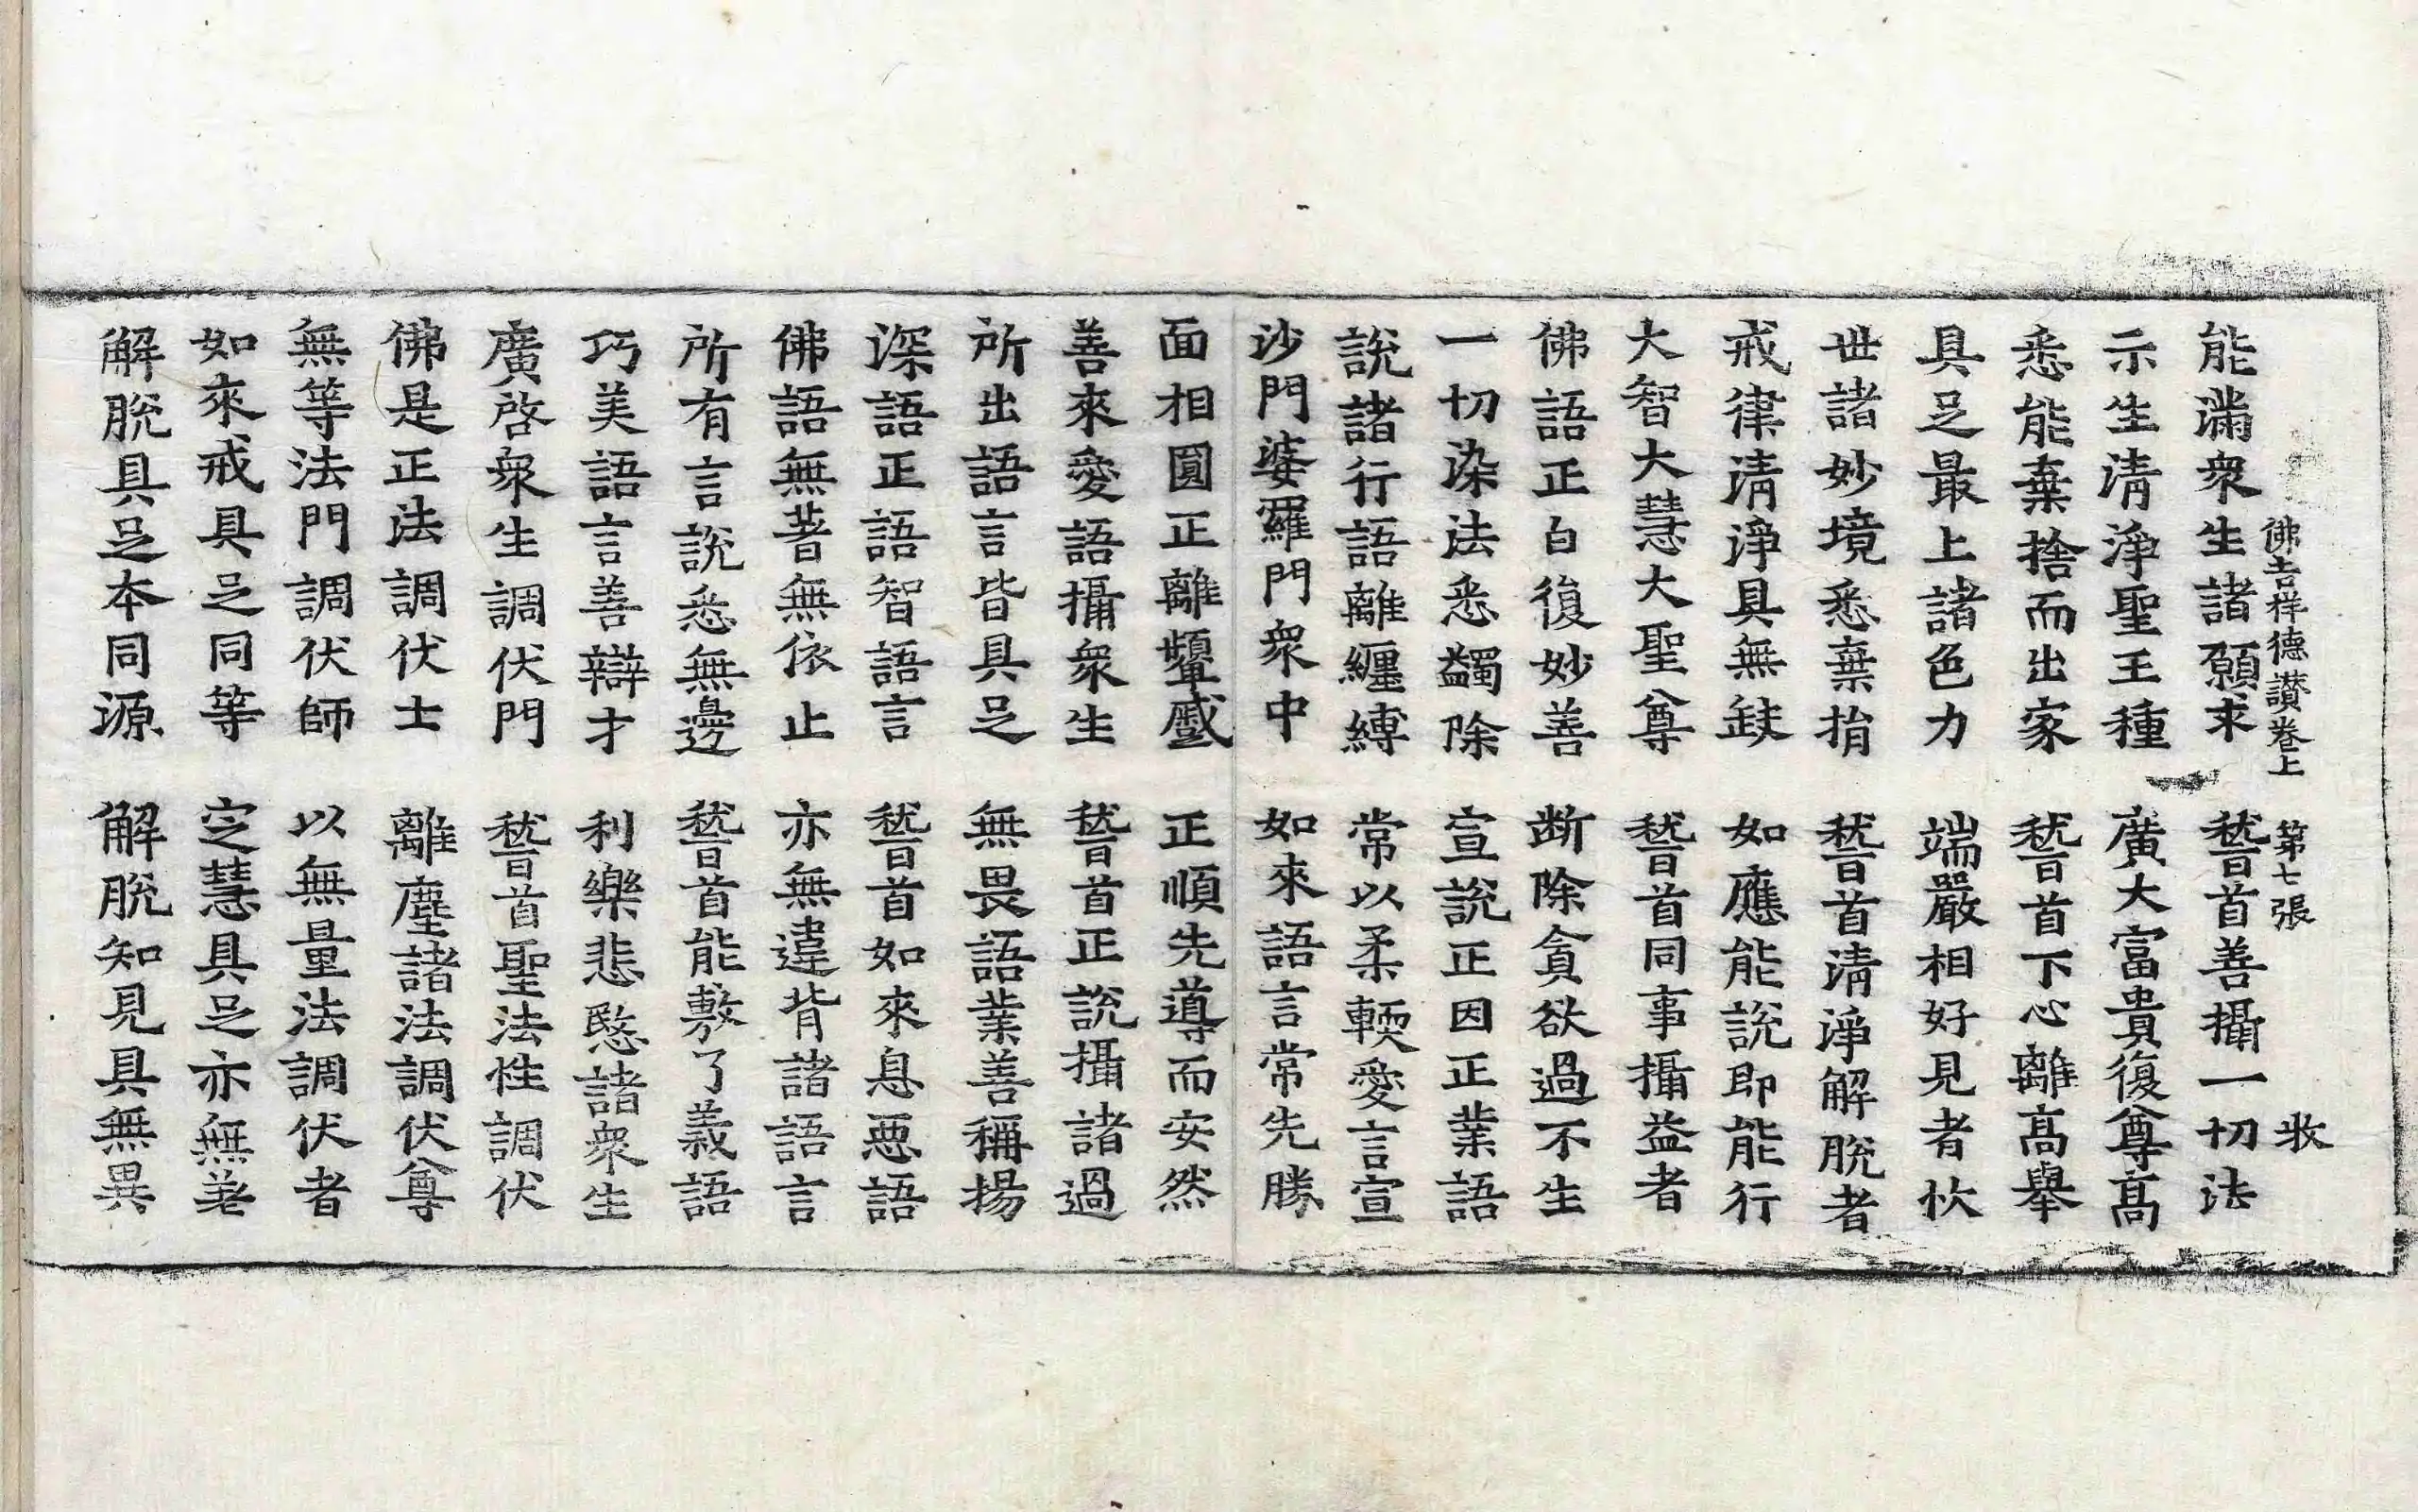 佛吉祥德讃卷上 第七張 收
能滿衆生諸願求 稽首善攝一切法
示生清淨聖王種 廣大富貴復尊高
悉能棄捨而出家 稽首下心離高舉
具足最上諸色力 端嚴相好見者忻
世諸妙境悉棄捐 稽首清淨解脫者
戒律清淨具無缺 如應能說即能行
大智大慧大聖尊 稽首同事攝益者
佛語正白復妙善 断除貪欲過不生
一切染法悉蠲除 宣說正因正業語
說諸行語離纏縛 常以柔輭愛言宣
沙門婆羅門衆中 如來語言常先勝
面相圓正離顰蹙 正順先導而安然
善來愛語攝衆生 稽首正說攝諸過
所出語言皆具足 無畏語業善稱揚
深語正語智語言 稽首如來息惡語
佛語無著無依止 亦無違背諸語言
所有言說悉無邊 稽首能敷了義語
巧美語言善辯才 利樂悲愍諸衆生
廣啓衆生調伏門 稽首聖法性調伏
佛是正法調伏士 離塵諸法調伏尊
無等法門調伏師 以無量法調伏者
如來戒具足同等 定慧具足亦無差
解脫具足本同源 解脫知見具無異